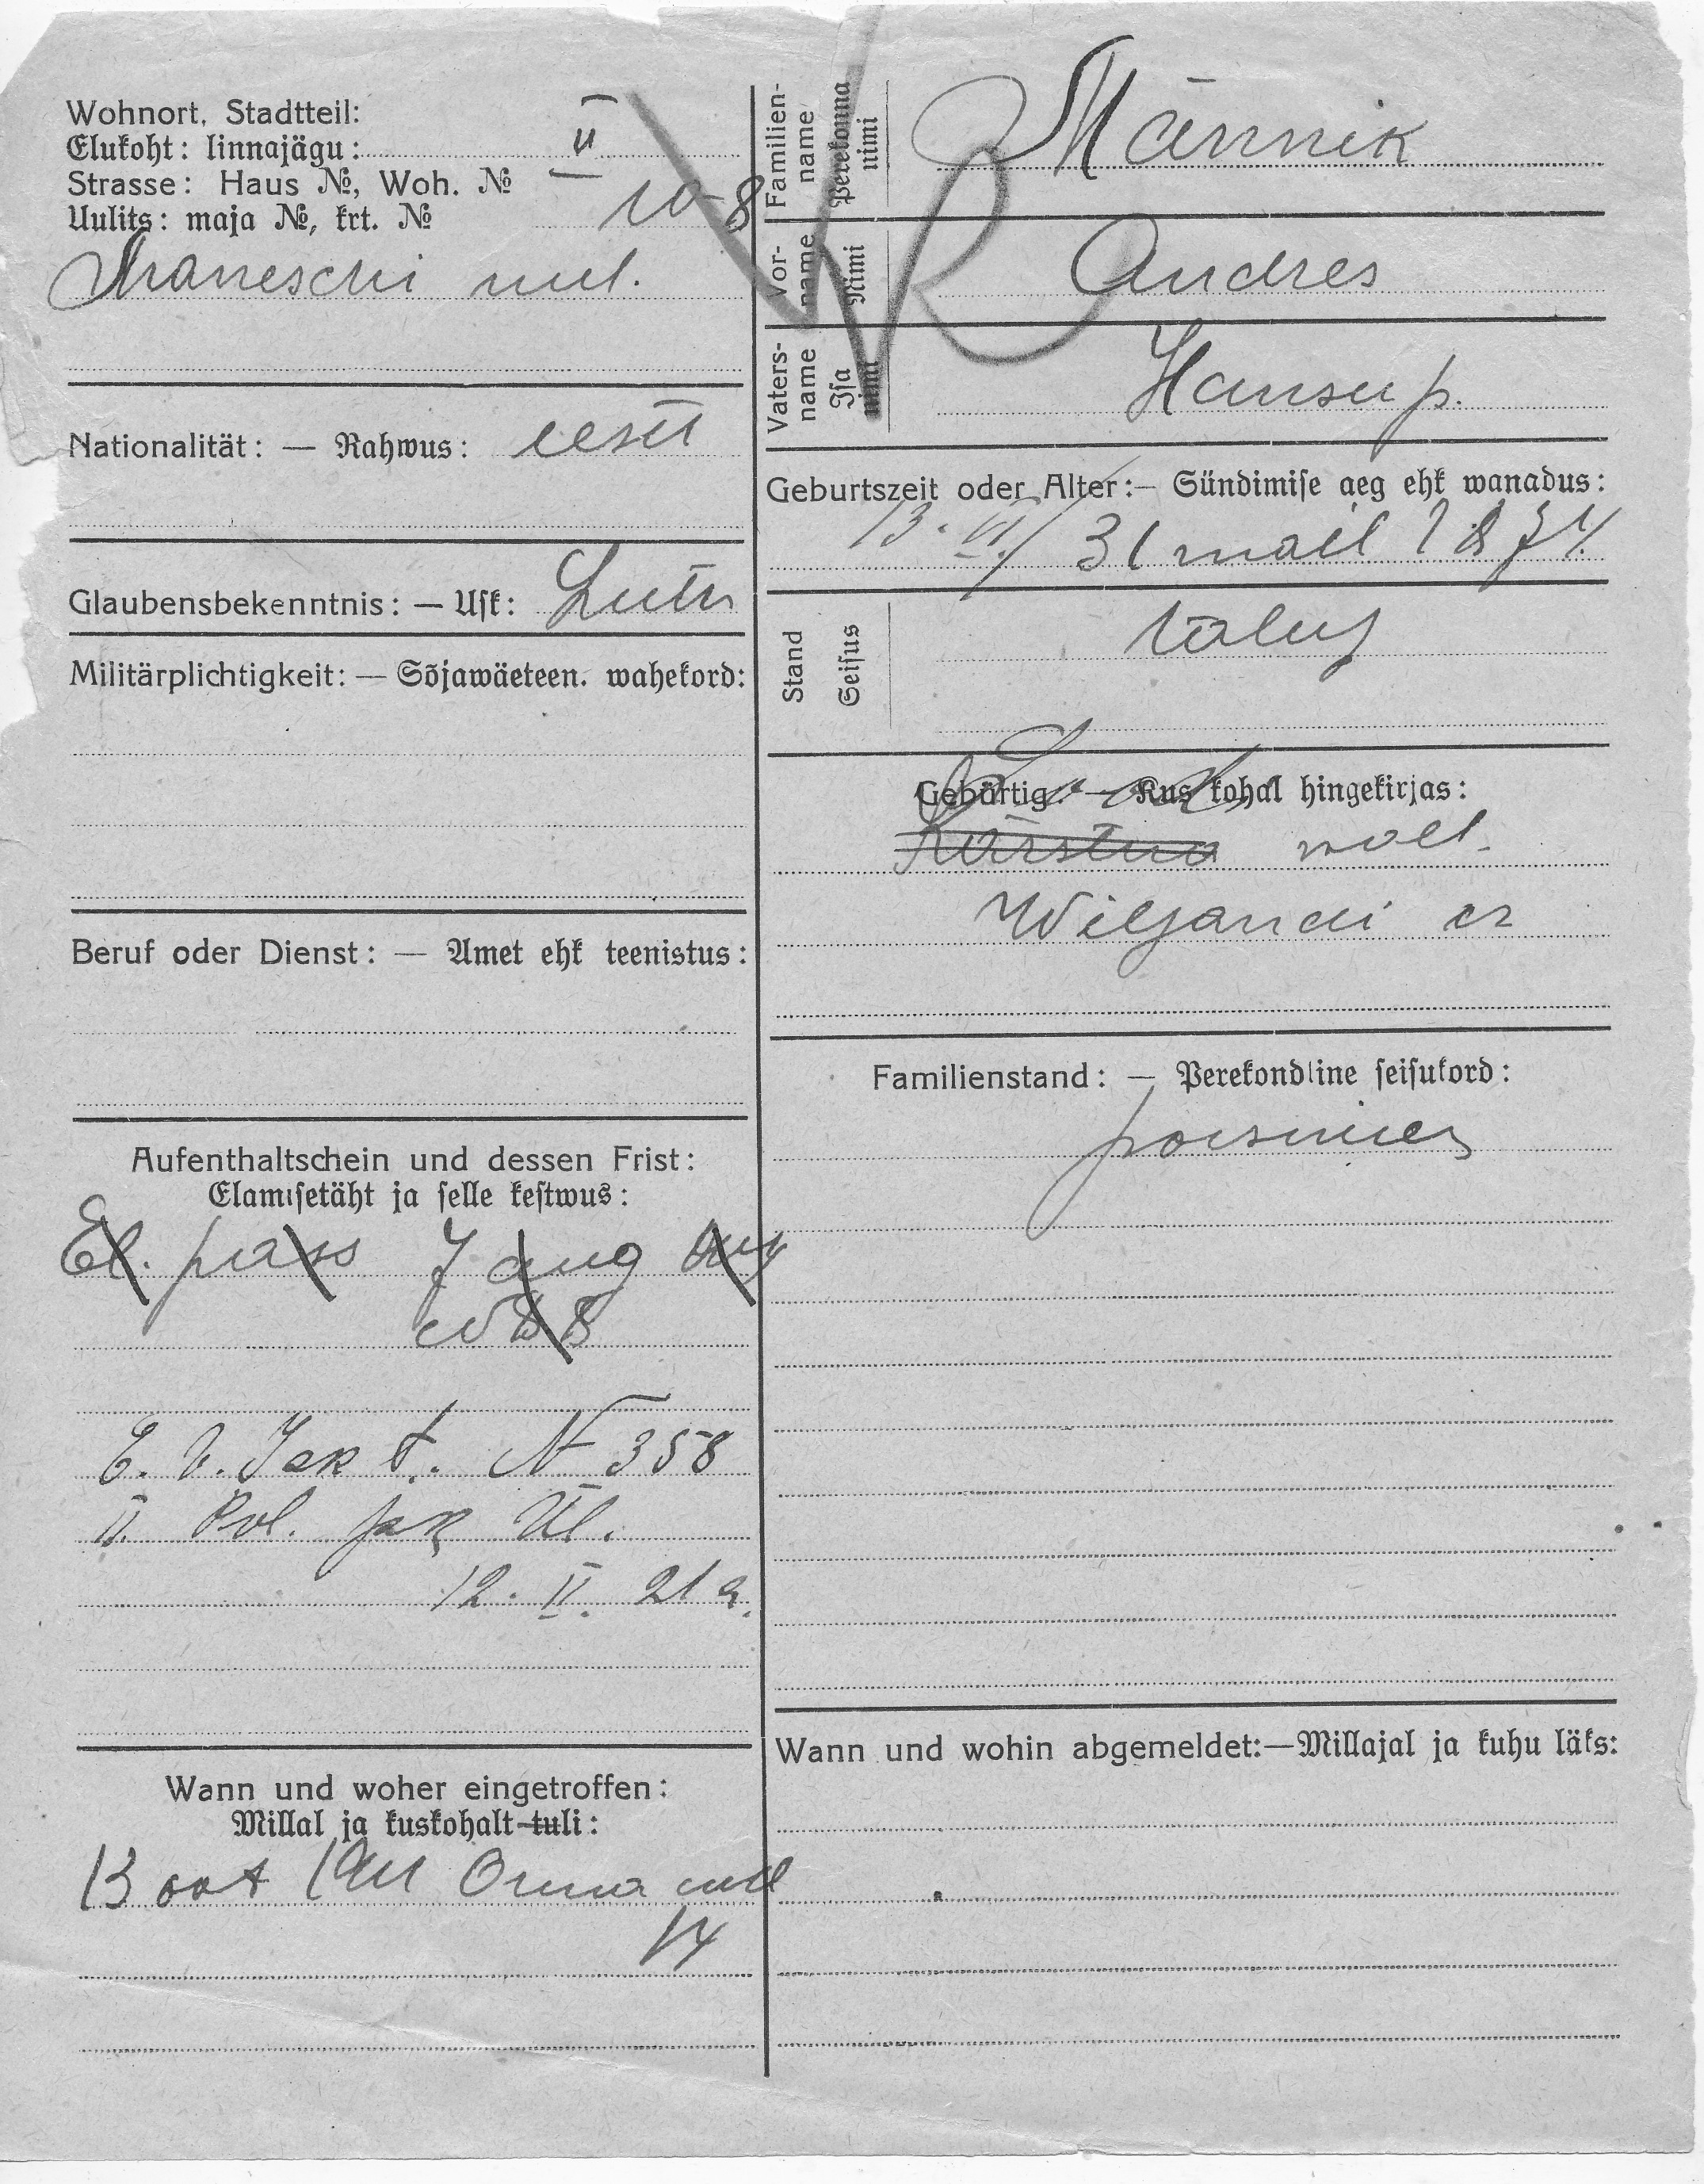 Wohnort, Stadtteil:
Elukoht: linnajägu: II
Strasse: Haus №, Woh. №
Uulits: maja №, krt. № 10-8
uul.
Nationalität: — Rahwus: eesti
Glaubensbekenntnis: — Usk: Luth
Militärplichtigkeit: — Sõjawäeteen. wahekord:
Beruf oder Dienst: — Amet ehk teenistus:
Aufenthaltschein und dessen Frist:
Elamisetäht ja selle kestwus:
El. pass 7 aug
E. V. Isk t. N 358
II. Pol. jsk Ül.
12. II. 21 a.
Wann und woher eingetroffen:
Millal ja kuskohalt tuli:
13 okt
14
Familien-name
Perekonna nimi
Männik
VR
Vor-name
Nimi
Andres
Vaters-name
Isa nimi
Hansu p.
Geburtszeit oder Alter:— Sündimise aeg ehk wanadus:
13. VI. / 31 mail 1874.
Stand
Seisus
taluj
Gebürtig: — Kus kohal hingekirjas:
Kärstna wall.
Wiljandi
Familienstand: — Perekondline seisukord:
poismees
Wann und wohin abgemeldet:—Millajal ja kuhu läks: